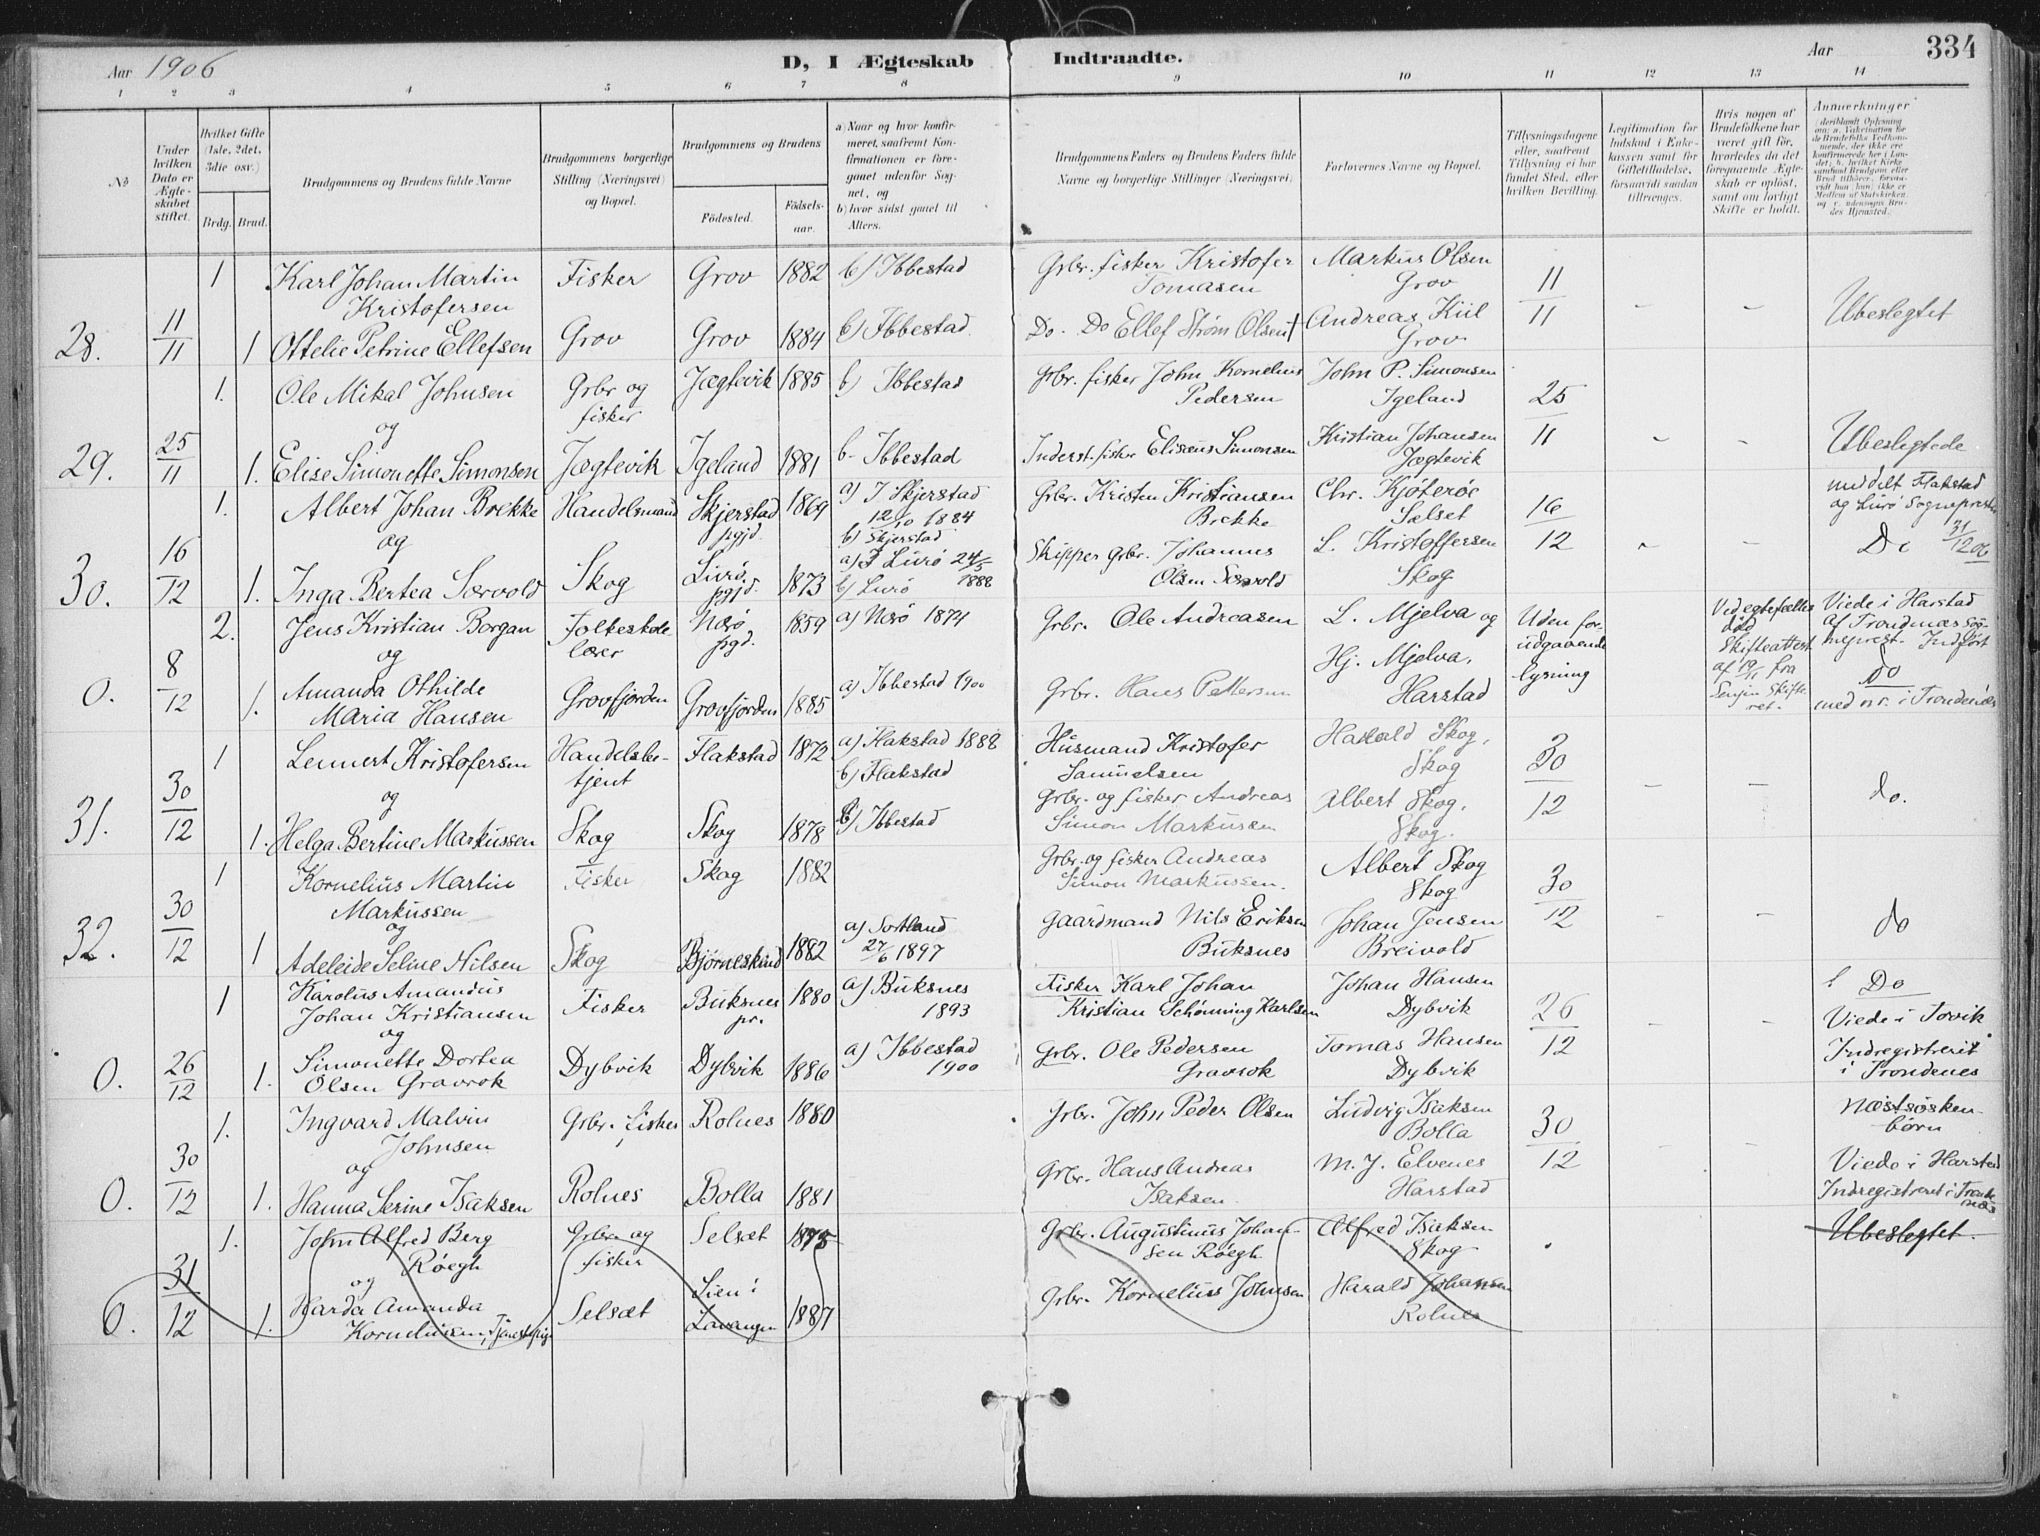 Aar 1906
D, I Ægteskab Indtraadte.
Aar
334
1 2 3 4 5 6 7 8 9 10 11 12 13 14
No
Under hvilken Dato er Ægteskabet stiftet.
Hvilket Gifte (1ste, 2det, 3die osv.)
Brdg. Brud.
Brudgommens og Brudens fulde Navne
Brudgommens borgerlige Stilling (Næringsvei) og Bopæl.
Brudgommens og Brudens
Födested. Födselsaar.
a) Naar og hvor konfirmeret, saafremt Konfirmationen er foregaaet udenfor Sognet, og
b) hvor sidst gaaet til Alters.
Brudgommens Faders og Brudens Faders fulde Navne og borgerlige Stillinger (Næringsvei).
Forlovernes Navne og Bopæl.
Tillysningsdagene eller, saafremt Tillysning ei har fundet Sted, efter hvilken Bevilling.
Legitimation for Indskud i Enkekassen samt for Giftetilladelse, forsaavidt saadan tiltrænges.
Hvis nogen af Brudefolkene har været gift för, hvorledes da det foregaaende Ægteskab er oplöst, samt om lovligt Skifte er holdt.
Anmerkninger
1 Karl Johan Martin Kristofersen Fisker Grov 1882 b) Ibbestad Grbr. fisker Kristofer Tomasen Markus Olsen Grov
28. 11/11 1 Ottelie Petrine Ellefsen Grov Grov 1884 b) Ibbestad. Do. Do Ellef Strøm Olsen † Andreas Kiil Grov 11/11 - - Ubeslegtet
1. Ole Mikal Johnsen Grbr og fisker Jægtevik 1885 b) Ibbestad Grbr. fisker John Kornelius Pedersen John P. Simonsen Igeland
og
29. 25/11 1. Elise Simonette Simonsen Jægtevik Igeland 1881 b- Ibbestad Inderst. fisker Eliseus Simonsen Kristian Johansen Jægtevik 25/11 - - Ubeslegtede
1. Albert Johan Brekke Handelsmand Skjerstad pgjd. 1869 a) I Skjerstad 12/10 1884 b) Skjerstad Grbr. Kristen Kristiansen Brekke Chr. Kjøterøe Sælset meddelt Flakstad og Lurø Sogneprester 31/12 06
og
30. 16/12 1. Inga Bertea Særvold Skog Lurø pgjd. 1873 a) I Lurø 24/5 1888 b) Lurø Skipper grbr. Johannes Olsen Særvold L. Kristoffersen Skog 16/12 - - Do
2. Jens Kristian Borgan Folkeskole lærer Nærø pgd. 1859 a) Nærø 1874 Grbr. Ole Andreasen L. Mjelva og Hj. Mjelva, Harstad Uden forudgaaende lysning Ved egtefælles død Skifteattest af 19/1 fra Senjen Skifteret. Viede i Harstad af Trondenæs Sogneprest. Indført
og
0. 8/12 1. Amanda Othilde Maria Hansen Grovfjorden Grovfjorden 1885 a) Ibbestad 1900 Grbr. Hans Pettersen do med nr. i Trondenæs
1 Lennert Kristofersen Handelsbetjent Flakstad 1872 a) Flakstad 1888 b) Flakstad Husmand Kristofer Samuelsen Harald Skog, Skog
og
31. 30/12 1. Helga Bertine Markussen Skog Skog 1878 b) Ibbestad Grbr. og fisker Andreas Simon Markussen Albert Skog, Skog. 30/12 - - do.
1 Kornelius Martin Markussen Fisker Skog 1882 Grbr. og fisker Andreas Simon Markussen. Albert Skog Skog
og
32. 30/12 1 Adeleide Seline Nilsen Skog Bjørneskind 1882 a) Sortland 27/6 1897 Gaardmand Nils Eriksen Buksnes Johan Jensen Breivold 30/12 - - do
1 Karolus Amandus Johan Kristiansen Fisker Buksnes pr. 1880 a) Buksnes 1893 Fisker Karl Johan Kristian Schønning Karlsen Johan Hansen Dybvik Do Viede i Tovik
og
0. 26/12 1. Simonette Dortea Olsen Gravrok Dybvik Dybvik 1886 a) Ibbestad 1900 Grbr. Ole Pedersen Gravrok Tomas Hansen Dybvik 26/12 - - Indregistrerit i Trondenes
1. Ingvard Malvin Johnsen Grbr. Fisker Rolnes 1880 Grbr. John Peder Olsen Ludvig Isaksen Bolla Næstsøskenbørn
og
0. 30/12 1. Hanna Serine Isaksen Rolnes Bolla 1881 Grbr. Hans Andreas Isaksen. M. J. Elvenes Harstad 30/12 - - Viede i Harstad Indregistreret i Trondenæs
1. John Alfred Berg Røegh Grbr. og fisker Selsæt 1875 Grbr. Augustinus Johansen Røegh Alfred Isaksen Skog Ubeslegtet.
og
0. 31/12 1. Harda Amanda Korneliussen, Tjenestepige Selsæt Lien i Lavangen 1887 Grbr. Kornelius Johnsen Harald Johansen Rolnes